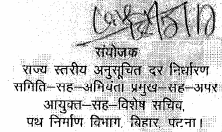 संयोजक
राज्य स्तरीय अनुसूचित दर निर्धारण
समिति-सह-अभियंता प्रमुख-सह-अपर
आयुक्त-सह-विशेष सचिव,
पथ निर्माण विभाग, बिहार, पटना।